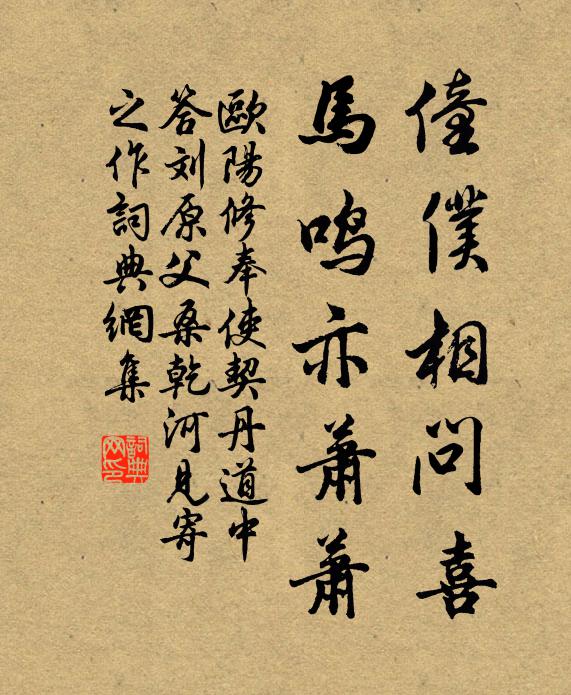 僮僕相问喜
馬鸣亦蕭蕭
歐陽修奉使契丹道中
答刘原父桑乾河見寄
之作詞典網集
詞典
网印